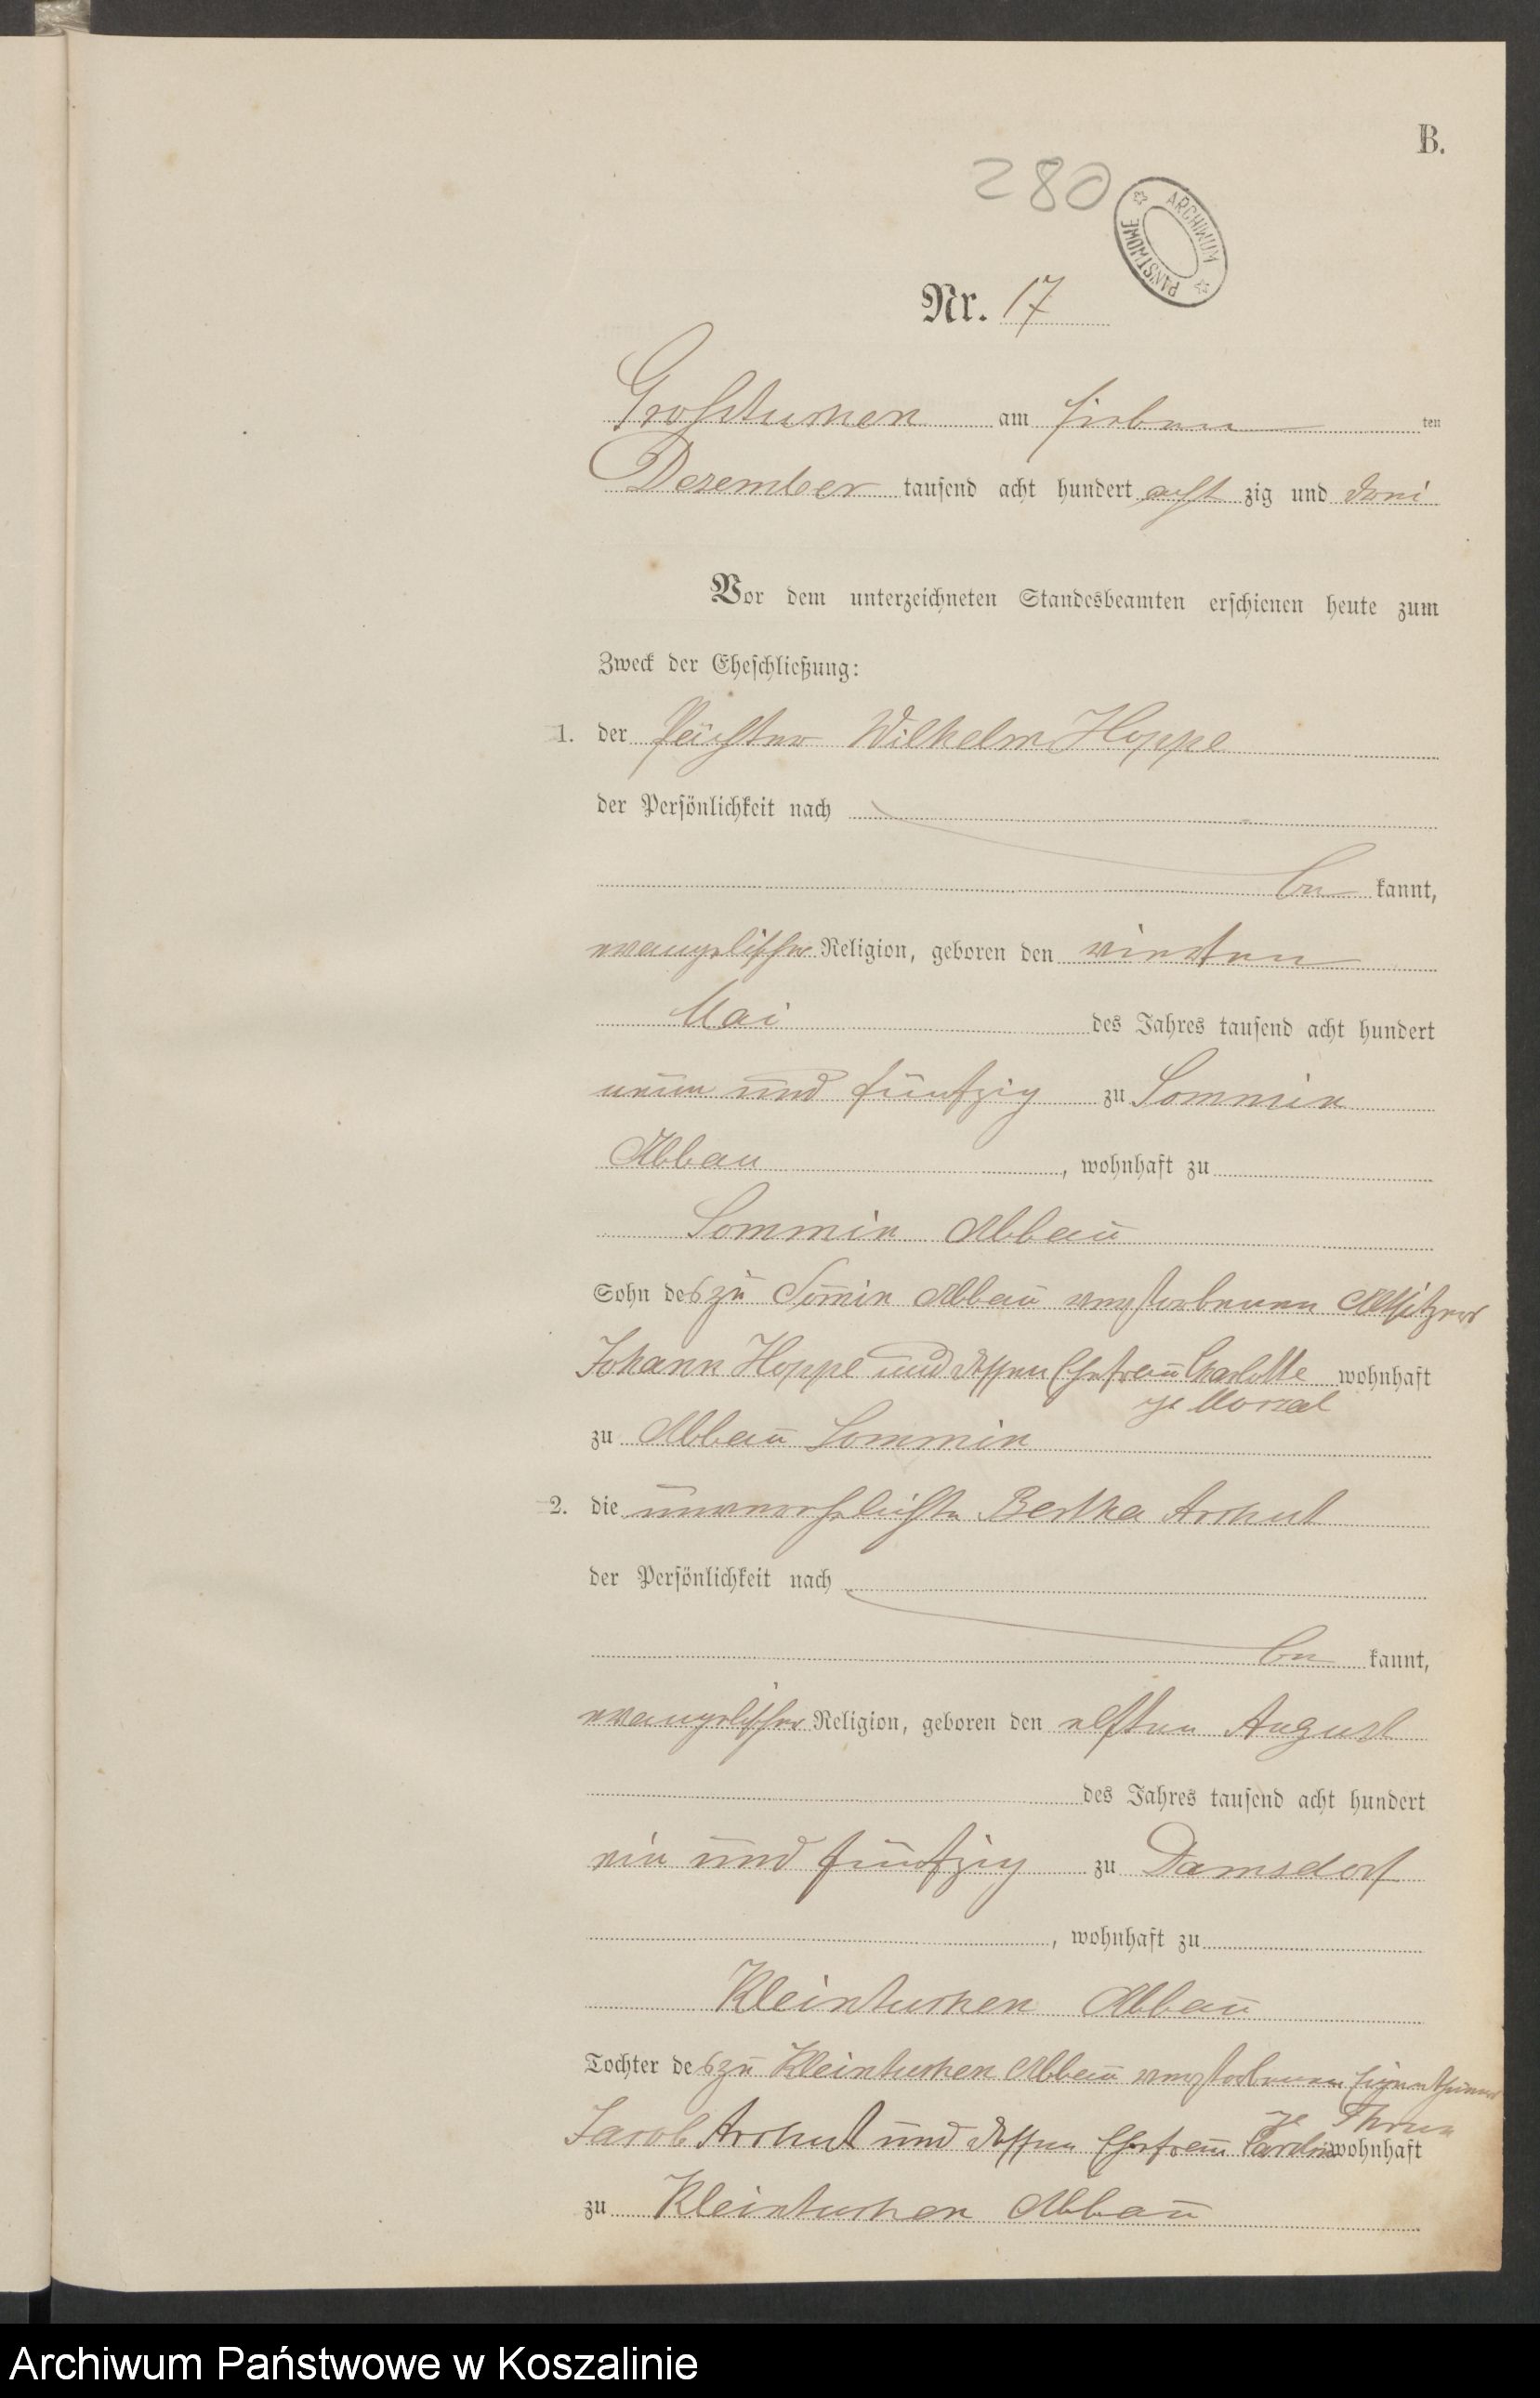 B.
280
ARCHIWUM PAŃSTWOWE
Nr. 17
Grosstuchen am sieben ten
Dezember tausend acht hundert acht zig und drei
Vor dem unterzeichneten Standesbeamten erschienen heute zum
Zweck der Eheschließung:
1. der Pächter Wilhelm Hoppe
der Persönlichkeit nach
be kannt,
evangelischer Religion, geboren den vierten
Mai des Jahres tausend acht hundert
neun und fünfzig zu Sommin
Abbau, wohnhaft zu
Sommin Abbau
Sohn des zu Sommin Abbau verstorbenen Altsitzers
Johann Hoppe und dessen Ehefrau Charlotte wohnhaft
zu Abbau Sommin
2. die unverehelichte Bertha Archut
der Persönlichkeit nach
be kannt,
evangelischer Religion, geboren den elften August
des Jahres tausend acht hundert
ein und fünfzig zu Damsdorf
, wohnhaft zu
Kleintuchen Abbau
Tochter des zu Kleintuchen Abbau verstorbenen Eigenthümers
Jacob Archut und dessen Ehefrau wohnhaft
zu Kleintuchen Abbau
Archiwum Państwowe w Koszalinie